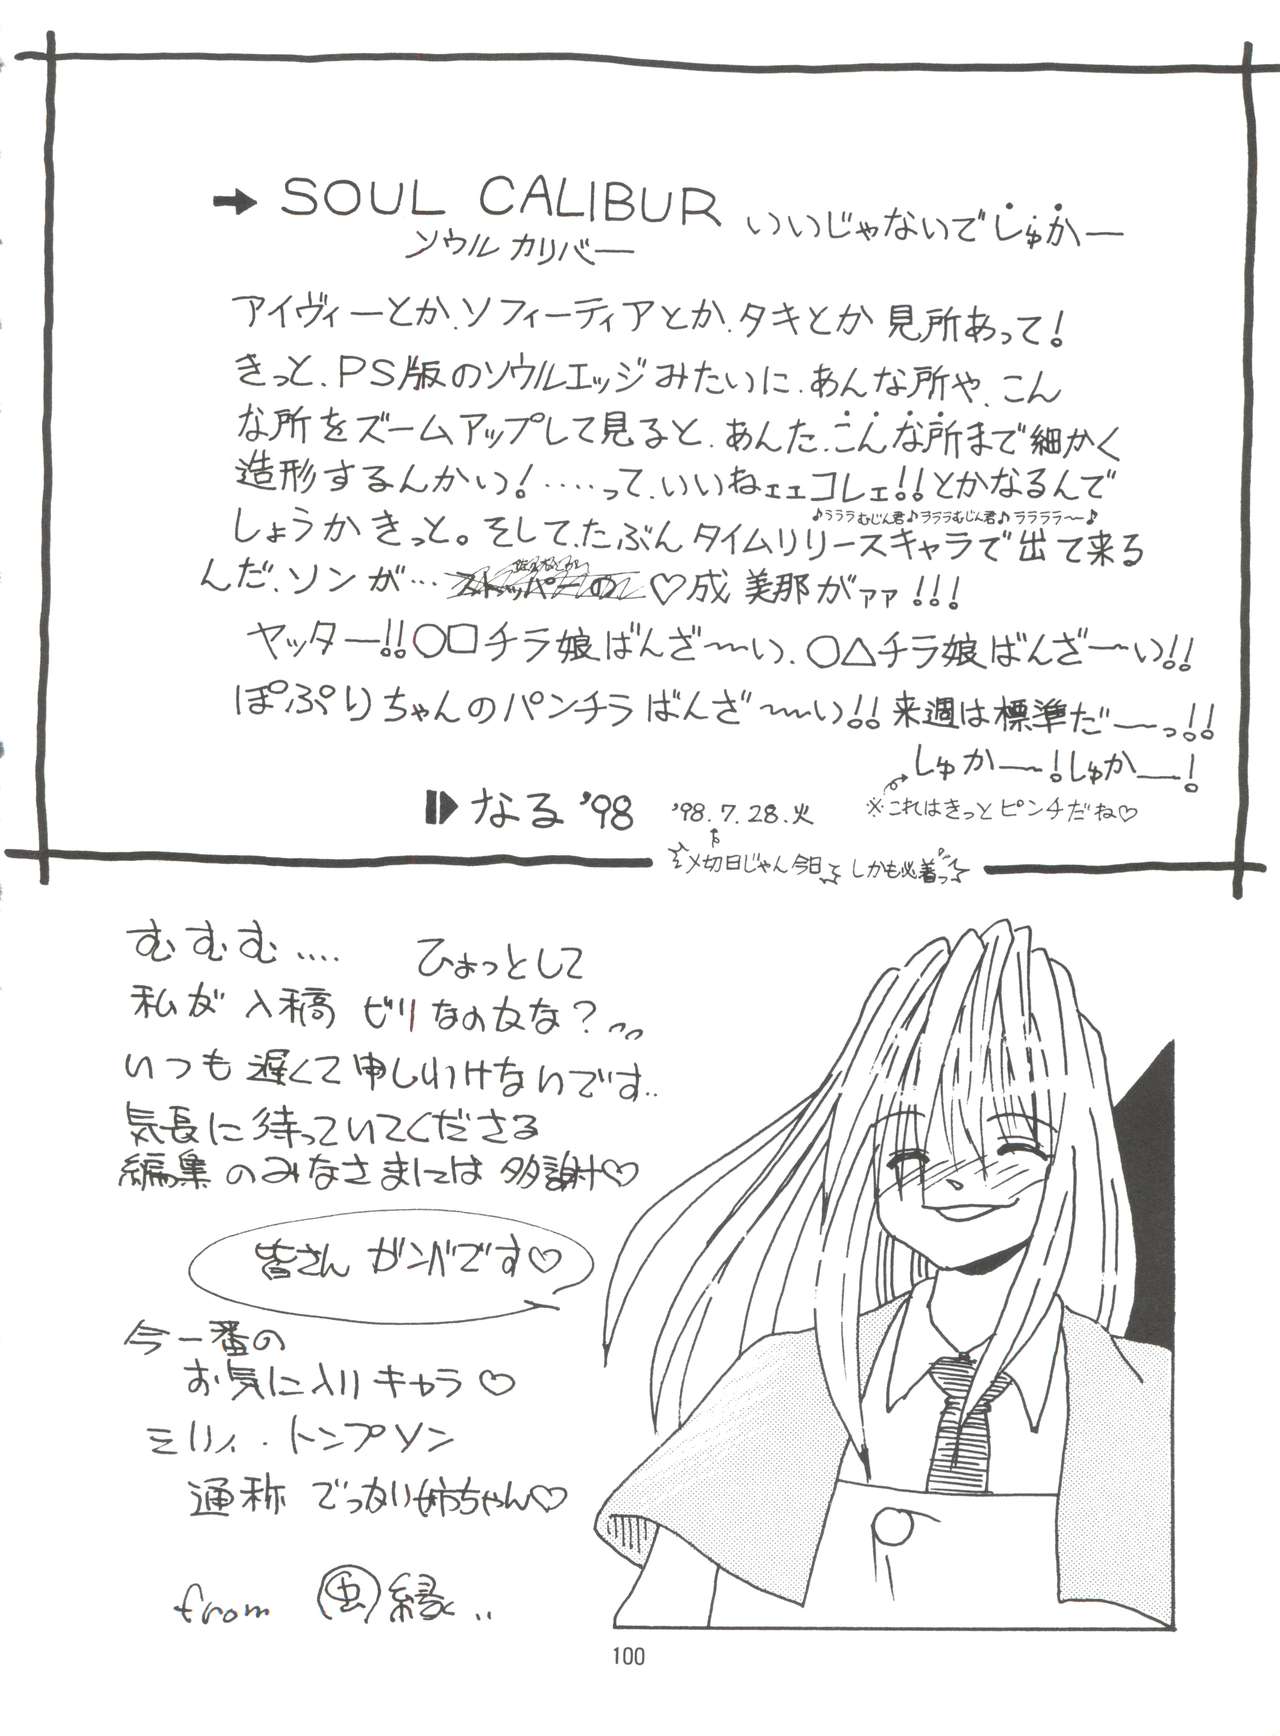 ➡ SOUL CALIBUR いいじゃないでしゅかー
ソウル カリバー
アイヴィーとか、ソフィーティアとか、タキとか 見所あって!
きっと、PS版のソウルエッジみたいに、あんな所や、こん
な所をズームアップして見ると、あんた、こんな所まで細かく
造形するんかい!……って、いいねェェコレェ!!とかなるんで
♪ラララむじん君♪ラララむじん君♪ララララ〜♪
しょうかきっと。そして、たぶんタイムリリースキャラで出て来る
んだ、ソンが… ♡成美那がァァ!!!
ヤッター!!○□チラ娘ばんざ〜い、○△チラ娘ばんざ〜い!!
ぽぷりちゃんのパンチラばんざ〜い!!来週は標準だーっ!!
しゅかー!しゅかー!
※これはきっとピンチだね♡
なる '98 '98.7.28.火
〆切日じゃん今日 しかも必着っ
むむむ‥‥ ひょっとして
私が入稿ビリなのかな?
いつも遅くて申しわけないです..
気長に待っていてくださる
編集のみなさまには多謝♡
皆さん ガンバです♡
今一番の
お気に入りキャラ♡
ミリィ・トンプソン
通称 でっかい姉ちゃん♡
from 虫縁..
100